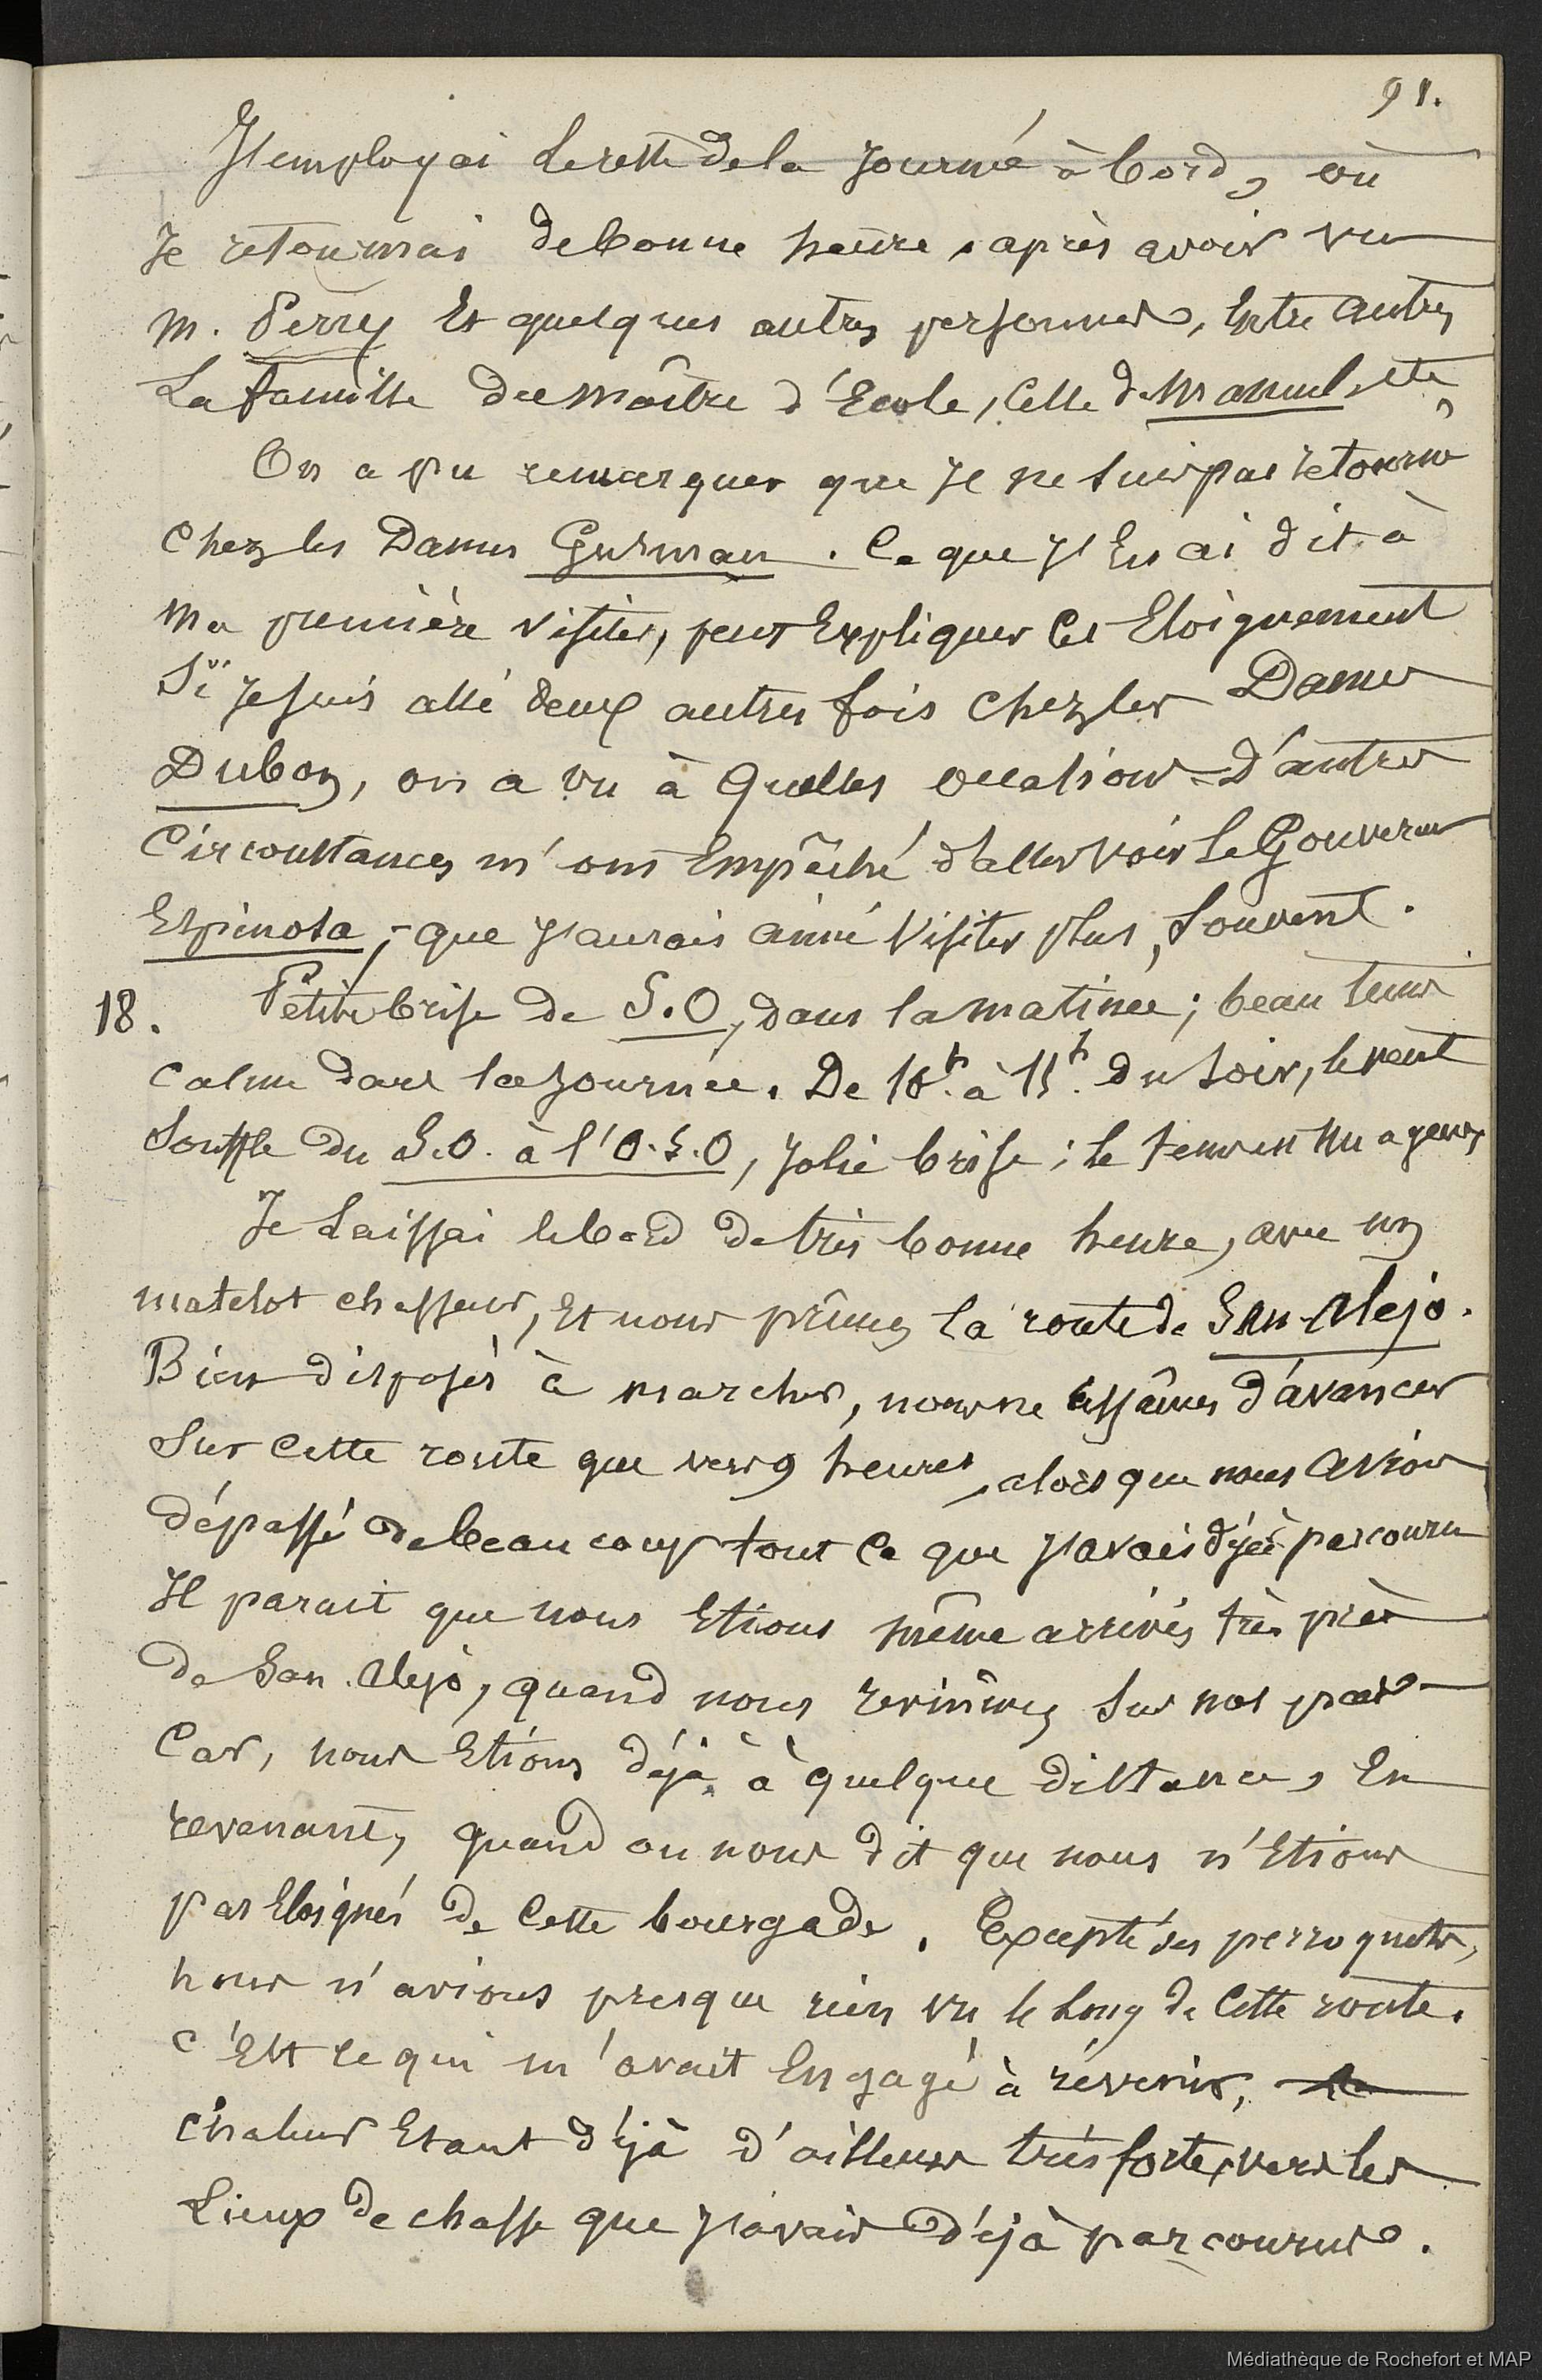 91.
J'employai le reste de la journée à bord, où
je retournai de bonne heure, après avoir vu
m. Perry Et quelques autres personnes, Entre autres
La famille du maître d'Ecole, celle de Manuel, etc,
On a pu remarquer que je ne suis pas retourné
chez les Dames Gusman. Ce que j'En ai dit à
ma première visite, peut Expliquer cet Eloignement
Si je suis allé deux autres fois chez les Dames
Dubon, on a vu à quelles occasions. D'autres
Circonstances m'ont Empêché d'aller voir le Gouverneur
Espinosa, que j'aurais aimé visiter plus souvent.
18. Petite brise de S.O, dans la matinée; beau tems
calme dans la journée. De 10h. à 11h. du soir, le vent
souffle du S.O. à l'O.S.O, jolie brise; le tems est nuageux
Je laissai le bord de très bonne heure, avec un
matelot chasseur, Et nous prîmes la route de San-Alejo.
Bien disposés à marcher, nous ne cessâmes d'avancer
sur cette route que vers 9 heures, alors que nous avions
dépassé de beaucoup tout ce que j'avais déjà parcouru
Il parait que nous Etions même arrivés très près
de San-Alejo, quand nous revînmes sur nos pas
Car, nous Etions déjà à quelque distance, En
revenant, quand on nous dit que nous n'Etions
pas Eloignés de cette bourgade. Excepté des perroquets,
nous n'avions presque rien vu le long de cette route.
c'Est ce qui m'avait Engagé à revenir, la
chaleur Etant déjà d'ailleurs très forte, vers les
Lieux de chasse que j'avais déjà parcourus.
Médiathèque de Rochefort et MAP